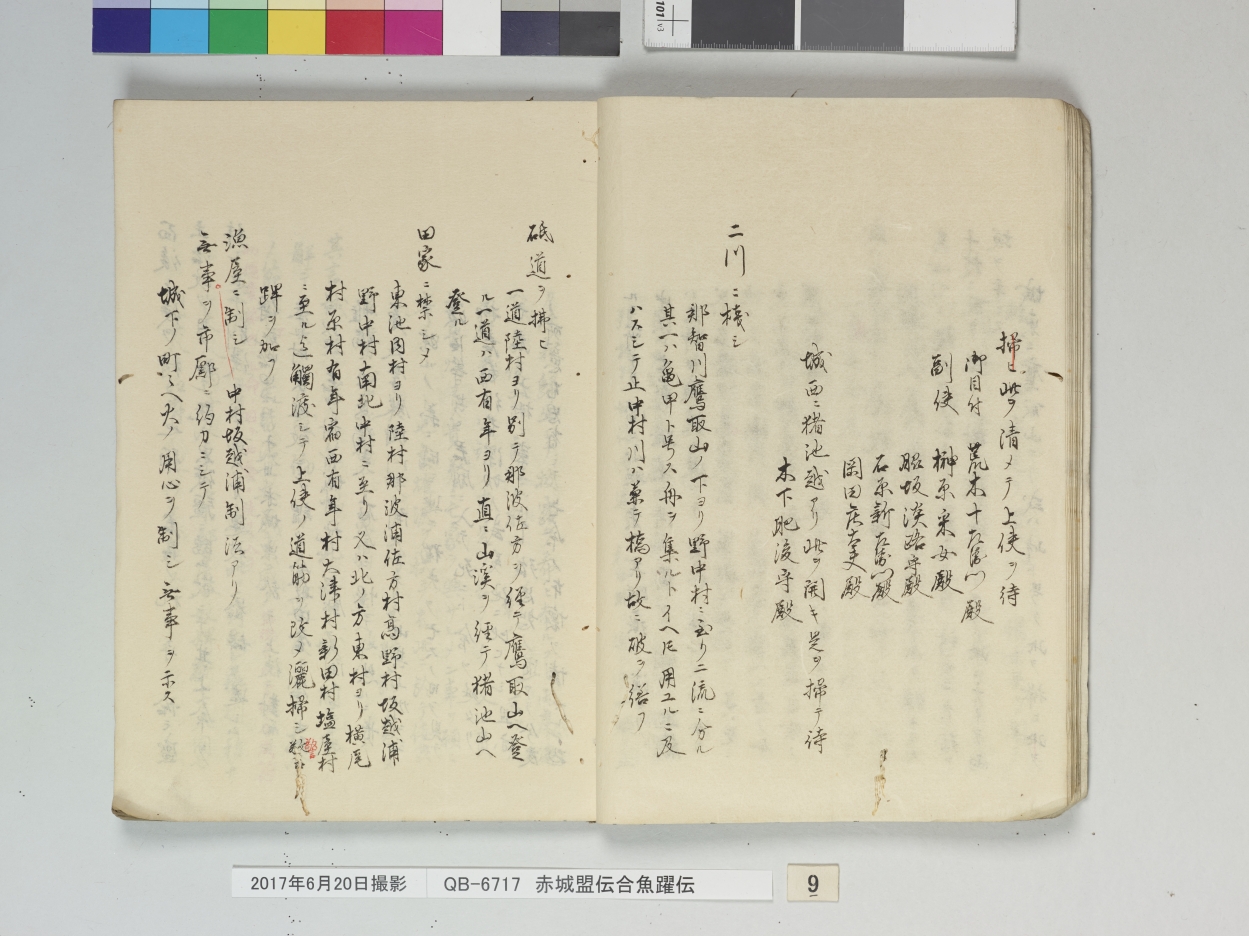 掃ヒ此ヲ清メテ上使ヲ待
御目付 荒木十左衛門殿
副使 榊原采女殿
脇坂淡路守殿
石原新左衛門殿
岡田庄太夫殿
木下肥後守殿
城西ニ猪池越アリ此ヲ開キ是ヲ掃テ待
二川ニ桟シ
那智川鷹取山ノ下ヨリ野中村ニ至リ二流ニ分ル
其一ハ亀甲ト号ス舟ヲ集ルトイヘ𪜈用ユルニ及
ハスシテ止中村川ハ兼テ橋アリ故ニ破ヲ繕フ
砥道ヲ拂ヒ
一道陸村ヨリ別テ那波佐方ヲ経テ鷹取山ヘ登
ル一道ハ西有年ヨリ直ニ山渓ヲ経テ猪池山ヘ
登ル
田家ニ禁シメ
東池田村ヨリ陸村那波浦佐方村高野村坂越浦
野中村南北中村ニ至リ又ハ北ノ方東村ヨリ横尾
村原村有年宿西有年村大津村新田村塩屋村
ニ至ル迄觸渡シテ上使ノ道筋ヲ改メ灑掃シ警
蹕ヲ加フ
漁屋ニ制シ 中村坂越浦制法アリ
無事ヲ市鄽ニ約
城下ノ町〻ヘ火ノ用心ヲ制シ無事ヲ示ス
101 v3
2017年6月20日撮影 QB-6717 赤城盟伝合魚躍伝
9